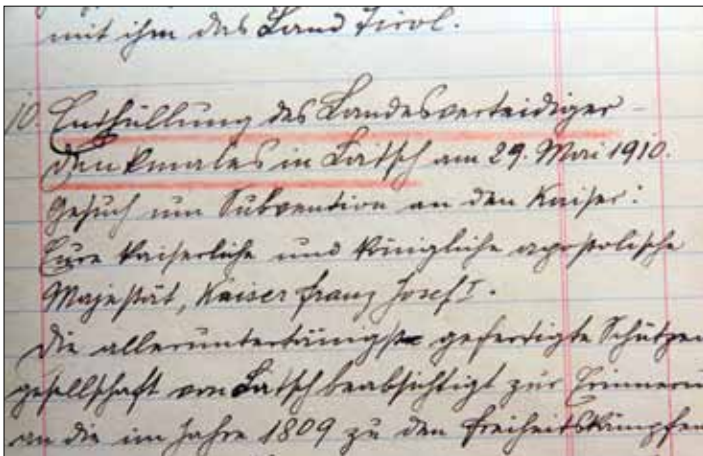 mit ihm das Land Tirol.
10. Enthüllung des Landesverteidiger-
Denkmales in Latsch am 29. Mai 1910.
Gesuch um Subvention an den Kaiser:
Eure kaiserliche und königliche apostolische
Majestät, Kaiser Franz Josef I.
Die alleruntertänigst gefertigte Schützen
gesellschaft von Latsch beabsichtigt zur Erinneru
an die im Jahre 1809 zu den Freiheitskämpfen